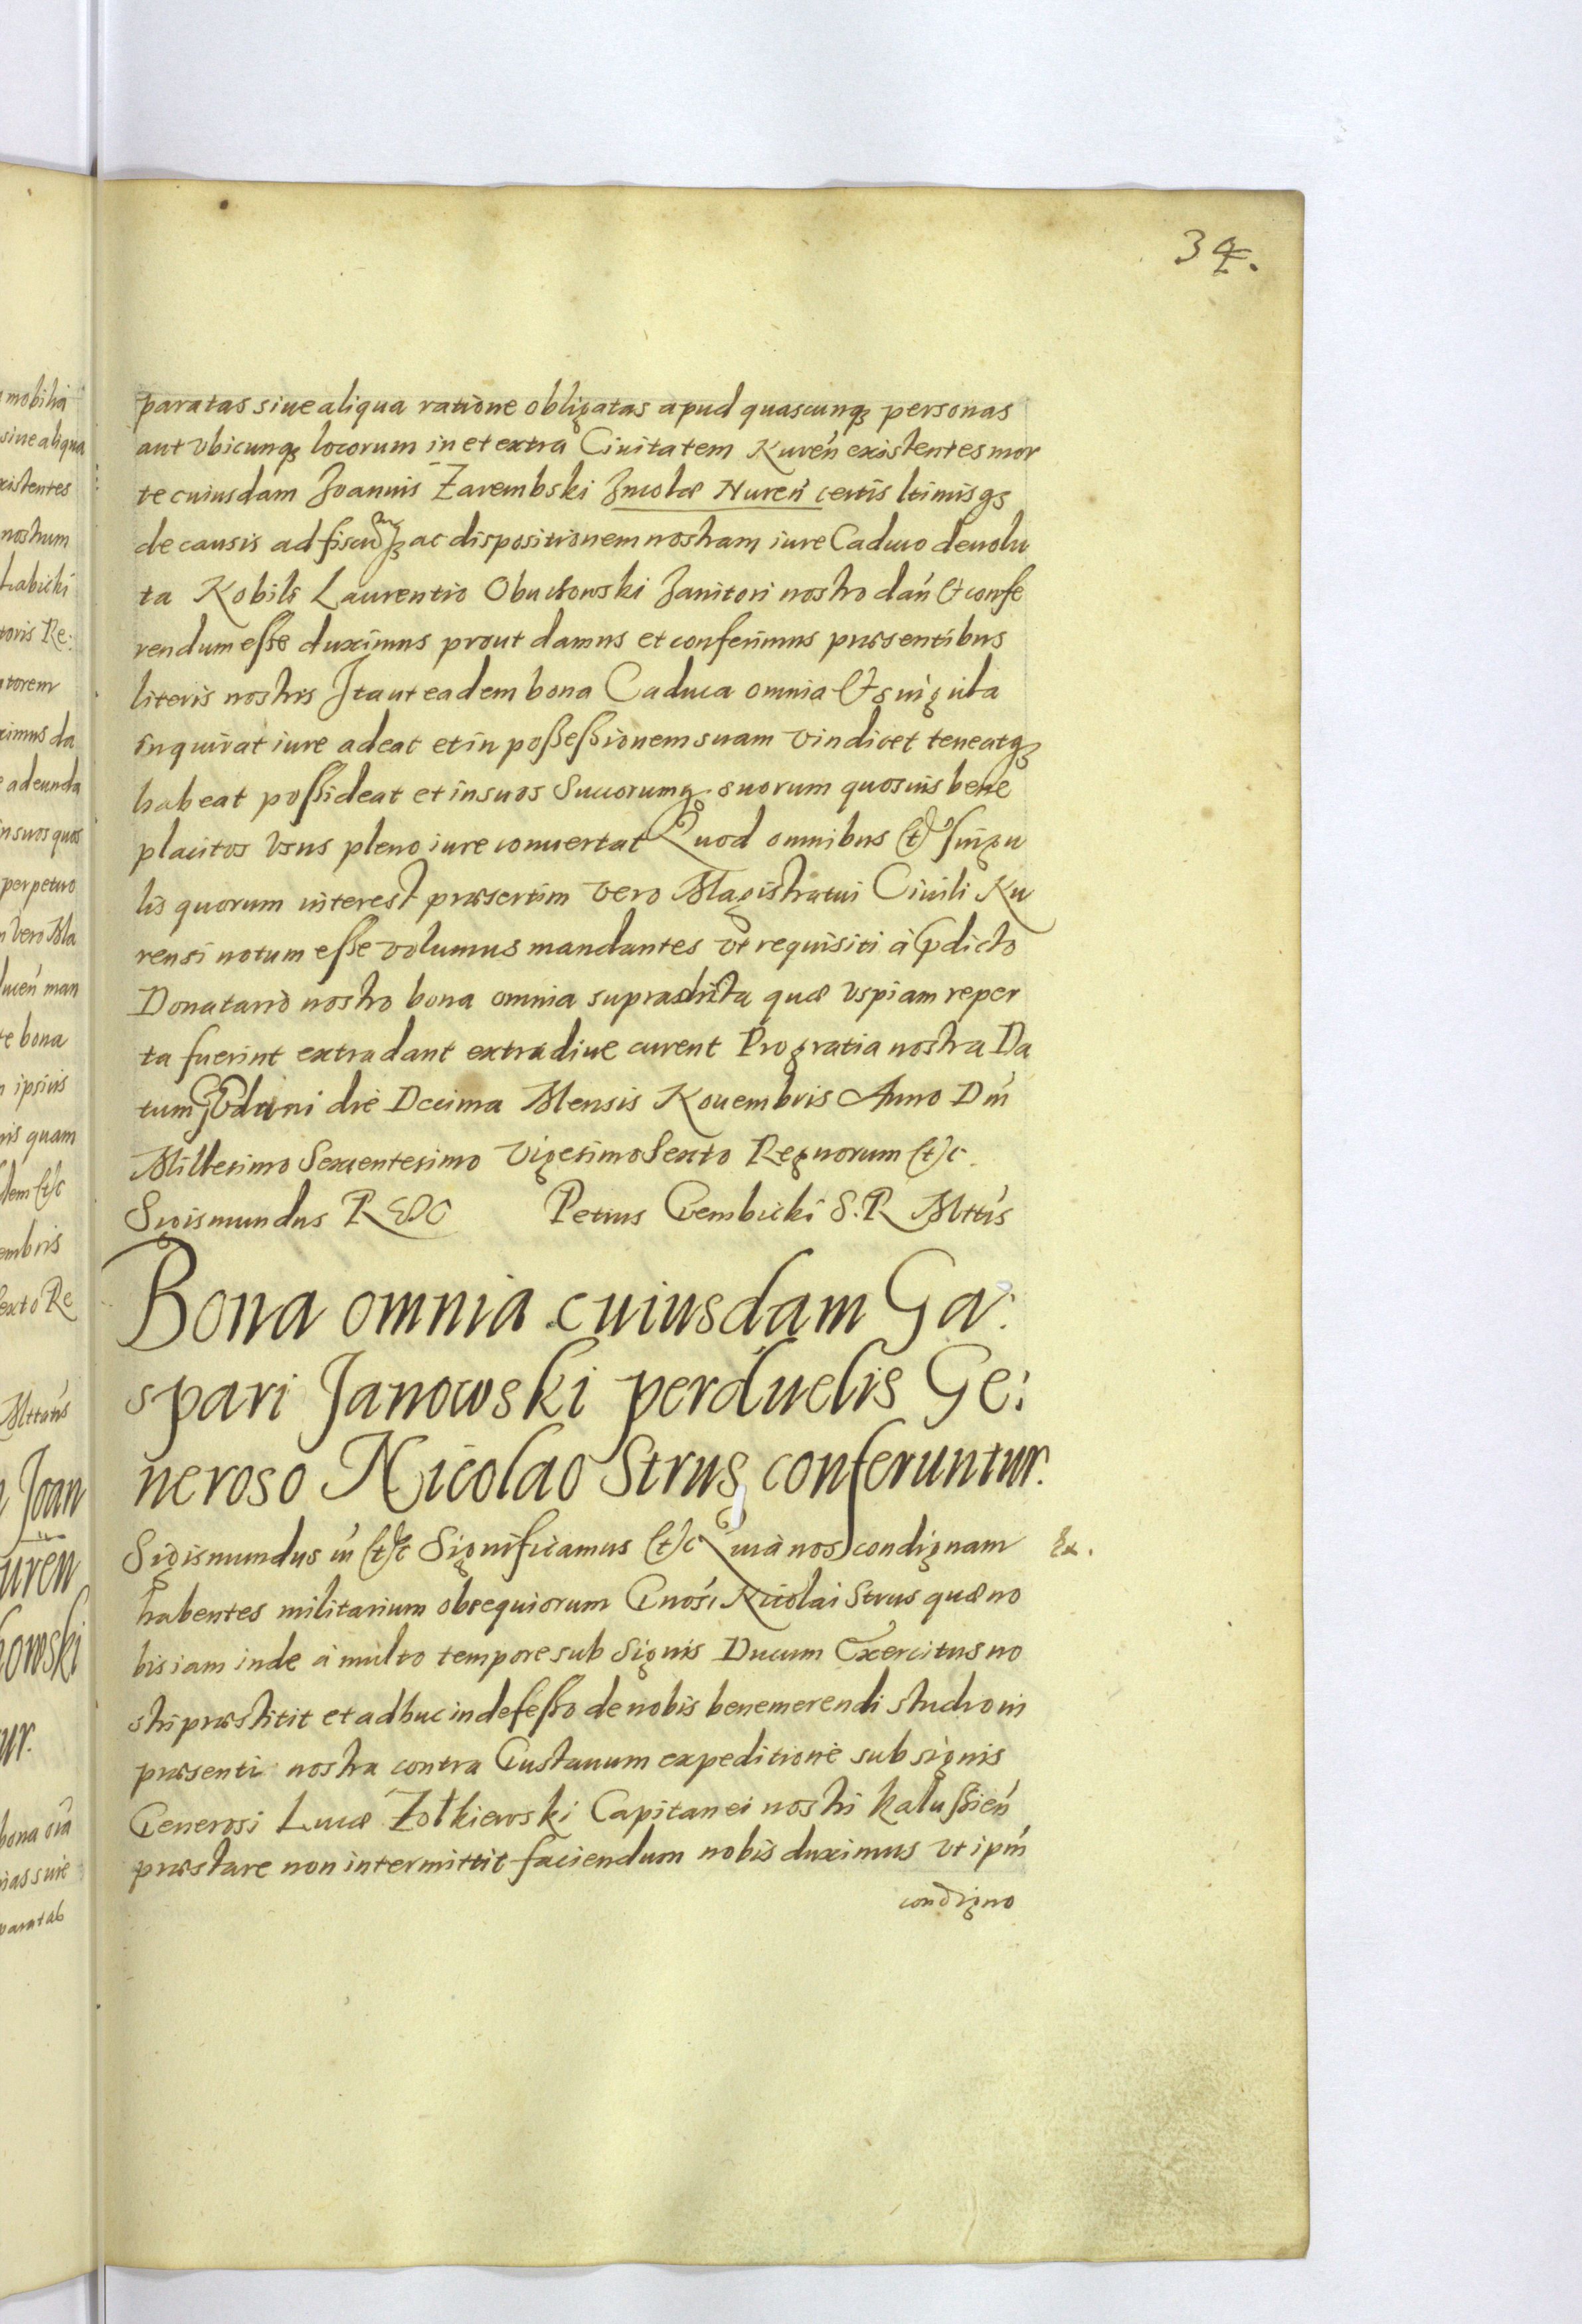 34.
paratas siue aliqua ratione obligatas apud quascunq₃ personas
aut vbicunq₃ locorum in et extra Ciuitatem Nureń existentes mor
te cuiusdam Joannis Zarembski Jncolæ Nureń certis ltimisq₃
de causis ad fiscũ ac dispositionem nostram iure Caduco deuolu
ta Nobili Laurentio Obuchowski Janitori nostro dań & confe
rendum esse duximus prout damus et conferimus præsentibus
literis nostris Jta ut eadem bona Caduca omnia & singula
inquirat iure adeat et in possessionem suam vindicet teneatq₃
habeat possideat et in suos Succorumq₃ suorum quosuis bene
placitos vsus pleno iure conuertat Quod omnibus et singu
lis quorum interest præsertim vero Magistratui Ciuili Nu
rensi notum esse volumus mandantes vt requisiti à pdicto
Donatario nostro bona omnia supradicta quæ vspiam reper
ta fuerint extradant extradiue curent Pro gratia nostra Da
tum Gedani die Decima Mensis Nouembris Anno Dńi
Millesimo Sexcentesimo Vigesimo Sexto Regnorum etc.
Sigismundus REX Petrus Gembicki S. R Mttis
Bona omnia cuiusdam Ga:
spari Janowski perduelis Ge:
neroso Nicolao Strus conferuntur.
Sigismundus iń etc Significamus etc Quia nos condignam
habentes militarium obsequiorum Gnosi Nicolai Strus quæ no
bis iam inde à multo tempore sub Signis Ducum Exercitus no
stri præstitit et adhuc indefesso de nobis benemerendi studio in
præsenti nostra contra Gustauum expeditione sub signis
Generosi Lucæ Zolkiewski Capitanei nostri Kalussień
præstare non intermittit faciendum nobis duximus vt ipm
condigno